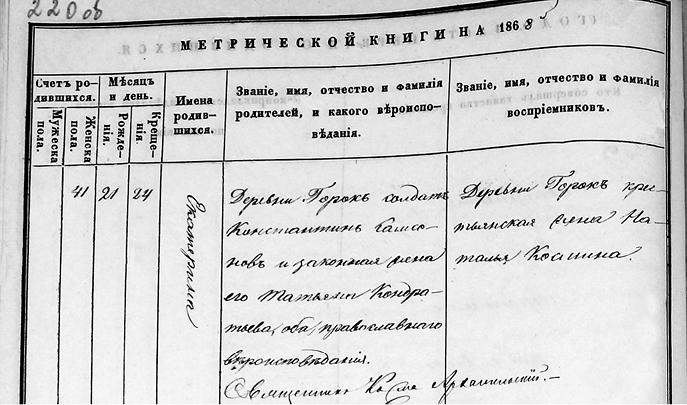 220 об
МЕТРИЧЕСКОЙ КНИГИ НА 1868
Счетъ ро-
дившихся.
Мужеска
пола.
Женска
пола.
Мѣсяцъ
и день.
Рожде-
нія.
Креще-
нія.
Имена
родив-
шихся.
Званіе, имя, отчество и фамилія
родителей, и какого вѣроиспо-
вѣданія.
Званіе, имя, отчество и фамилія
воспріемниковъ.
41 21 24
Екатерина
Деревни Горокъ солдатъ
Константинъ Самсо-
новъ и законная жена
его Татьяна Кондра-
тьева, оба православнаго
вѣроисповѣданія.
Деревни Горокъ кре-
стьянская жена На-
талья Космина.
Священникъ Косма Архангельскій.